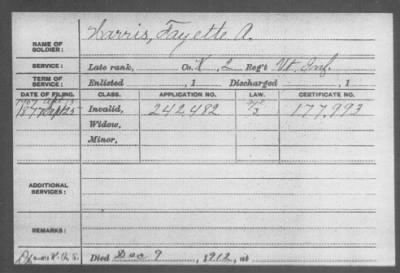 Harris, Fayette A.
NAME OF SOLDIER:
SERVICE: Late rank, Co. K, 2 Reg't Vt. Inf.
TERM OF SERVICE: Enlisted , 1 Discharged , 1
DATE OF FILING. CLASS. APPLICATION NO. LAW. CERTIFICATE NO.
1877 Invalid, 242,482 177,993
Widow,
Minor,
ADDITIONAL SERVICES:
REMARKS:
Died Dec 9, 1912, at